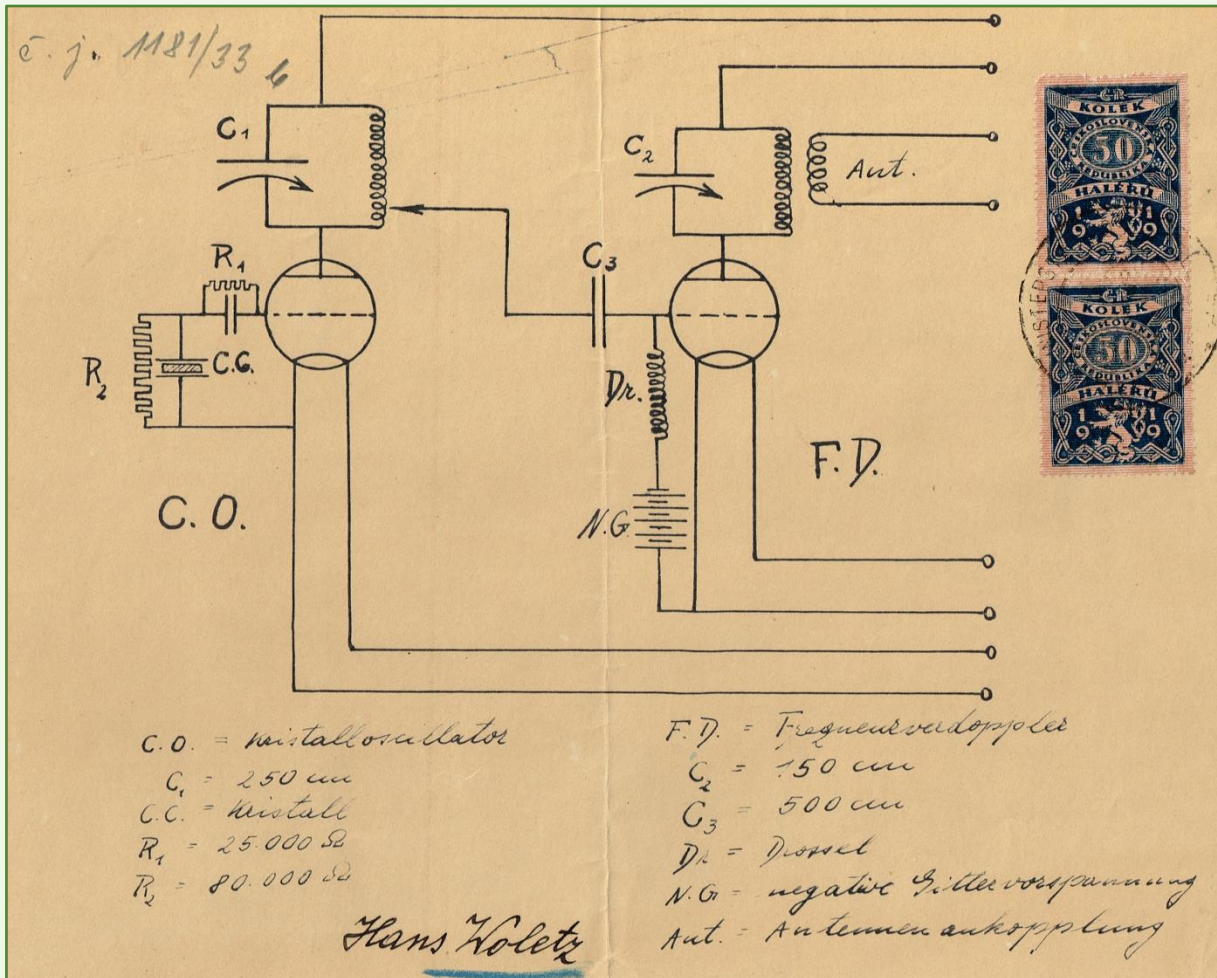 č. j. 1181/33
C₁
C₂
Ant.
R₁
C₃
R₂
C.C.
Dr.
N.G.
C. O.
F. D.
ČR
KOLEK
ČESKOSLOVENSKÁ
50
REPUBLIKA
HALÉŘŮ
1919
ČR
KOLEK
ČESKOSLOVENSKÁ
50
REPUBLIKA
HALÉŘŮ
1919
C.O. = Kristalloscillator
C₁ = 250 cm
C.C. = Kristall
R₁ = 25.000 Ω
R₂ = 80.000 Ω
Hans Woletz
F.D. = Frequenzverdoppler
C₂ = 150 cm
C₃ = 500 cm
Dr = Drossel
N.G = negative Gittervorspannung
Ant. = Antennenankopplung